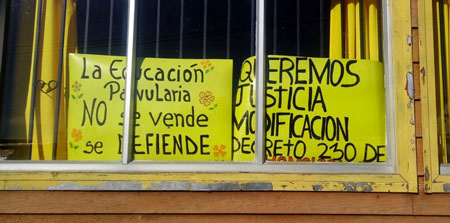 La Educación
Parvularia
NO se vende
se DEFIENDE
QUEREMOS
JUSTICIA
MODIFICACION
DECRETO 230 DE